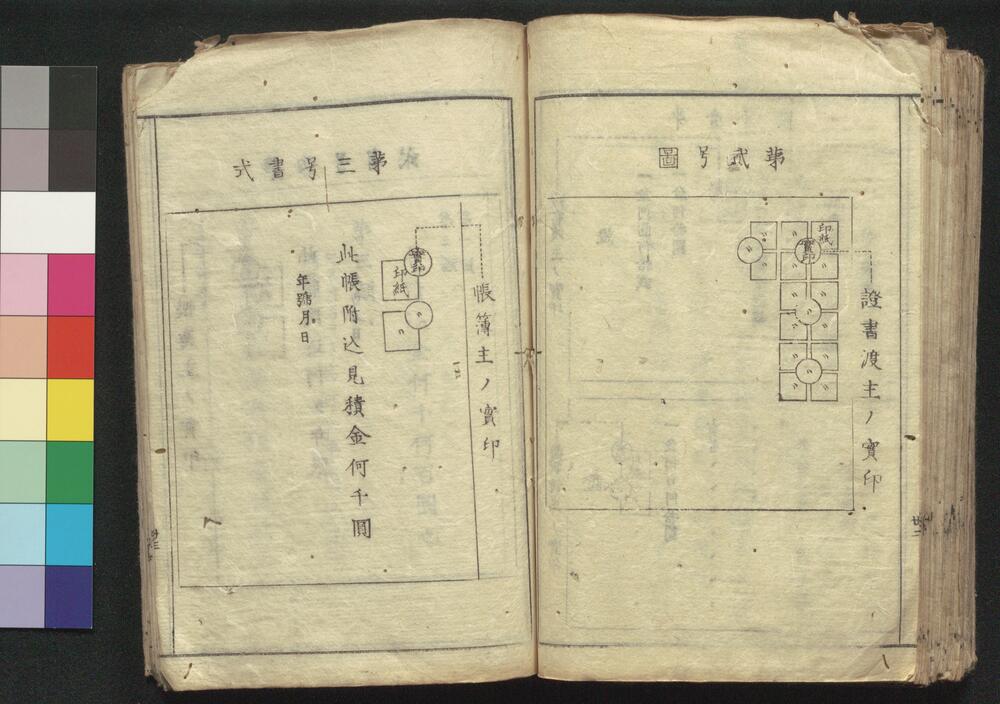 第貳号圖
證書渡主ノ實印
印紙
實印
〃
〃
〃
〃
〃
〃
〃
〃
〃
〃
〃
第三号書式
帳簿主ノ實印
實印
印紙
〃
〃
此帳附込見積金何千圓
年號月日